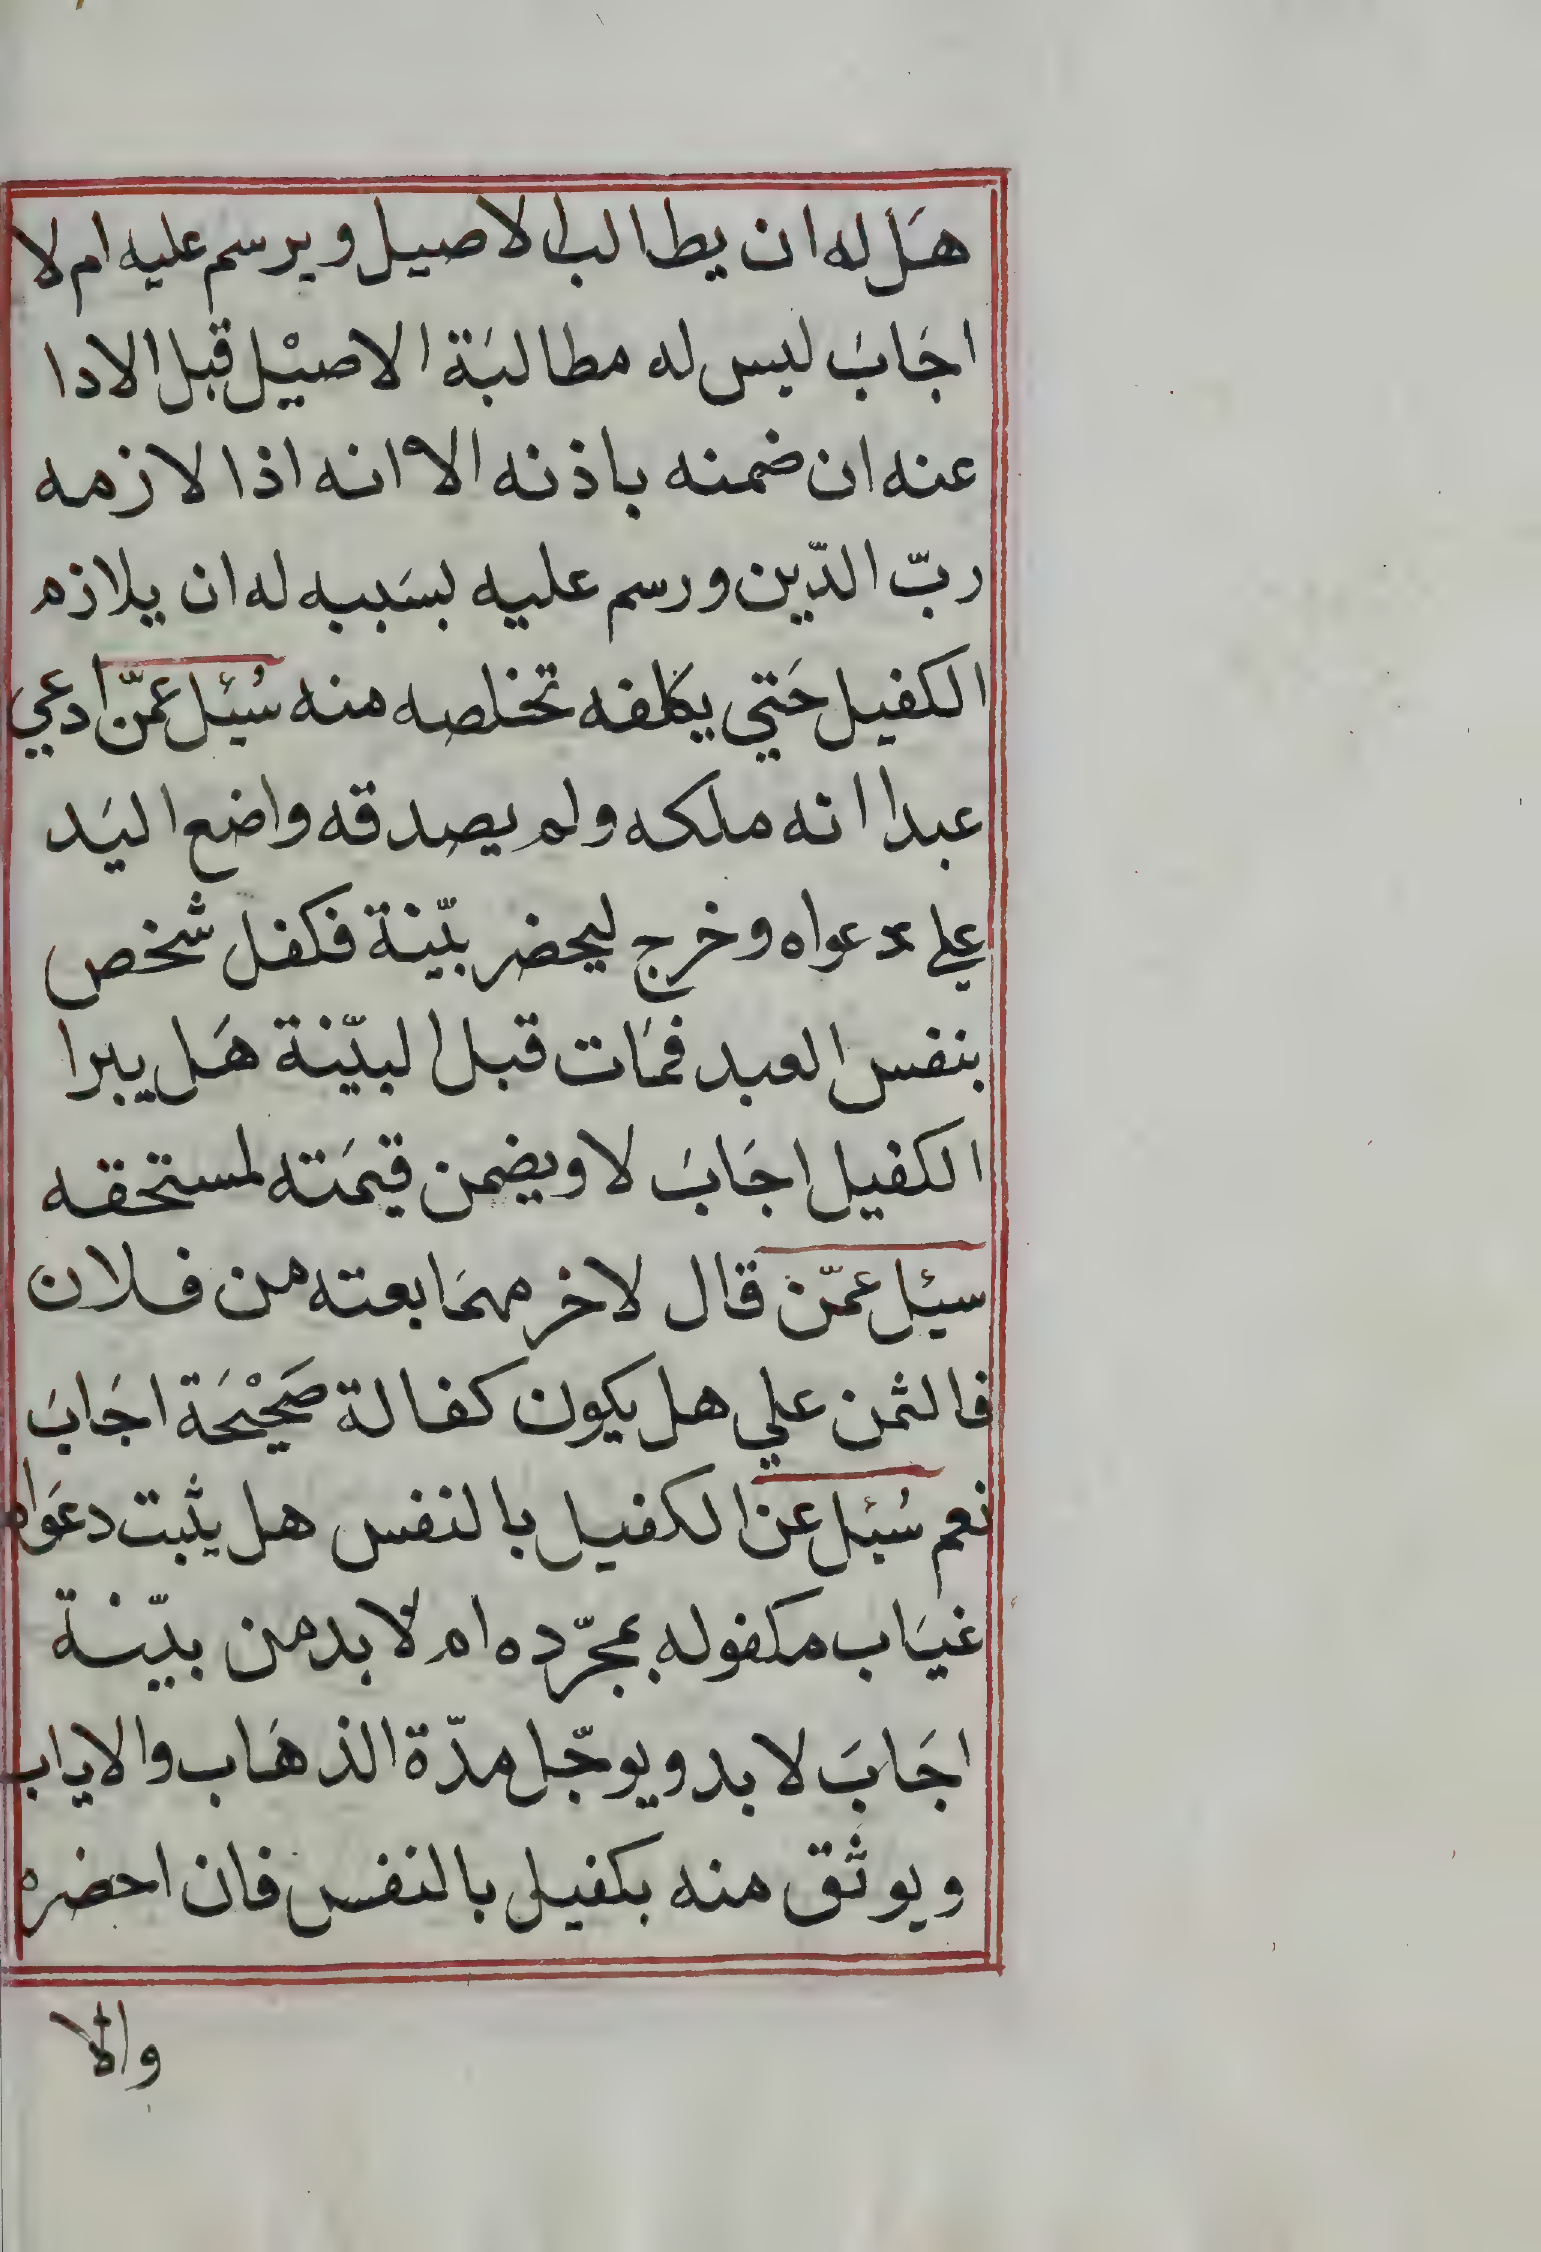 هَل له ان يطالب الاصيل ويرسم عليه ام لا
اجَابَ ليس له مطالبَة الاصيْل قبل الادا
عنه ان ضمنه باذنه الا انه اذا لازمه
ربّ الدّين ورسم عليه بسَببه له ان يلازم
الكفيل حَتي يكلفه تخلصه منه سُئل عمّن ادعي
عبدا انه ملكه ولم يصدقه واضع اليَد
علي دعواه وخرج ليحضر بيّنة فكفل شخص
بنفس العبد فمَات قبل البيّنة هَل يبرا
الكفيل اجَابَ لا ويضمن قيمَته لمستحقه
سئل عمّن قال لاخر مهمَا بعته من فلان
فالثمن علي هل يكون كفالة صَحيْحَة اجَابَ
نعم سُئل عن الكفيل بالنفس هل يثبت دعوَاه
غيَاب مكفوله بمجرّده ام لا بد من بيّنة
اجَابَ لا بد ويوجّل مدّة الذهَاب والاياب
ويوثق منه بكفيل بالنفس فان احضره
والا